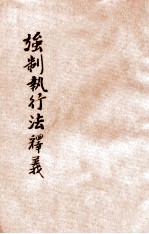 強制執行法釋義